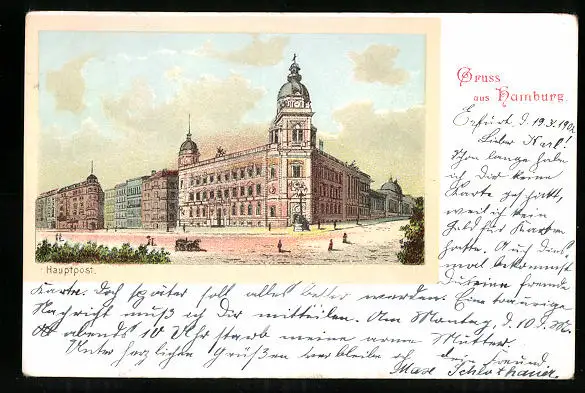 Gruss
aus Hamburg.
Erfurt d. 19.X.190
Lieber Karl!
Schon lange habe
ich Dir keine
Karte geschickt,
weil ich kein
Geld für Karten
hatte. Auch dies
mal bekommst
Du eine fremde
Hauptpost.
Karte. Doch später soll alles besser werden. Eine traurige
Nachricht muß ich Dir mitteilen. Am Montag, d. 10. d. M.
abends 10 Uhr starb meine arme Mutter.
Unter herzlichen Grüßen verbleibe ich dein Freund
Max Schlothauer.